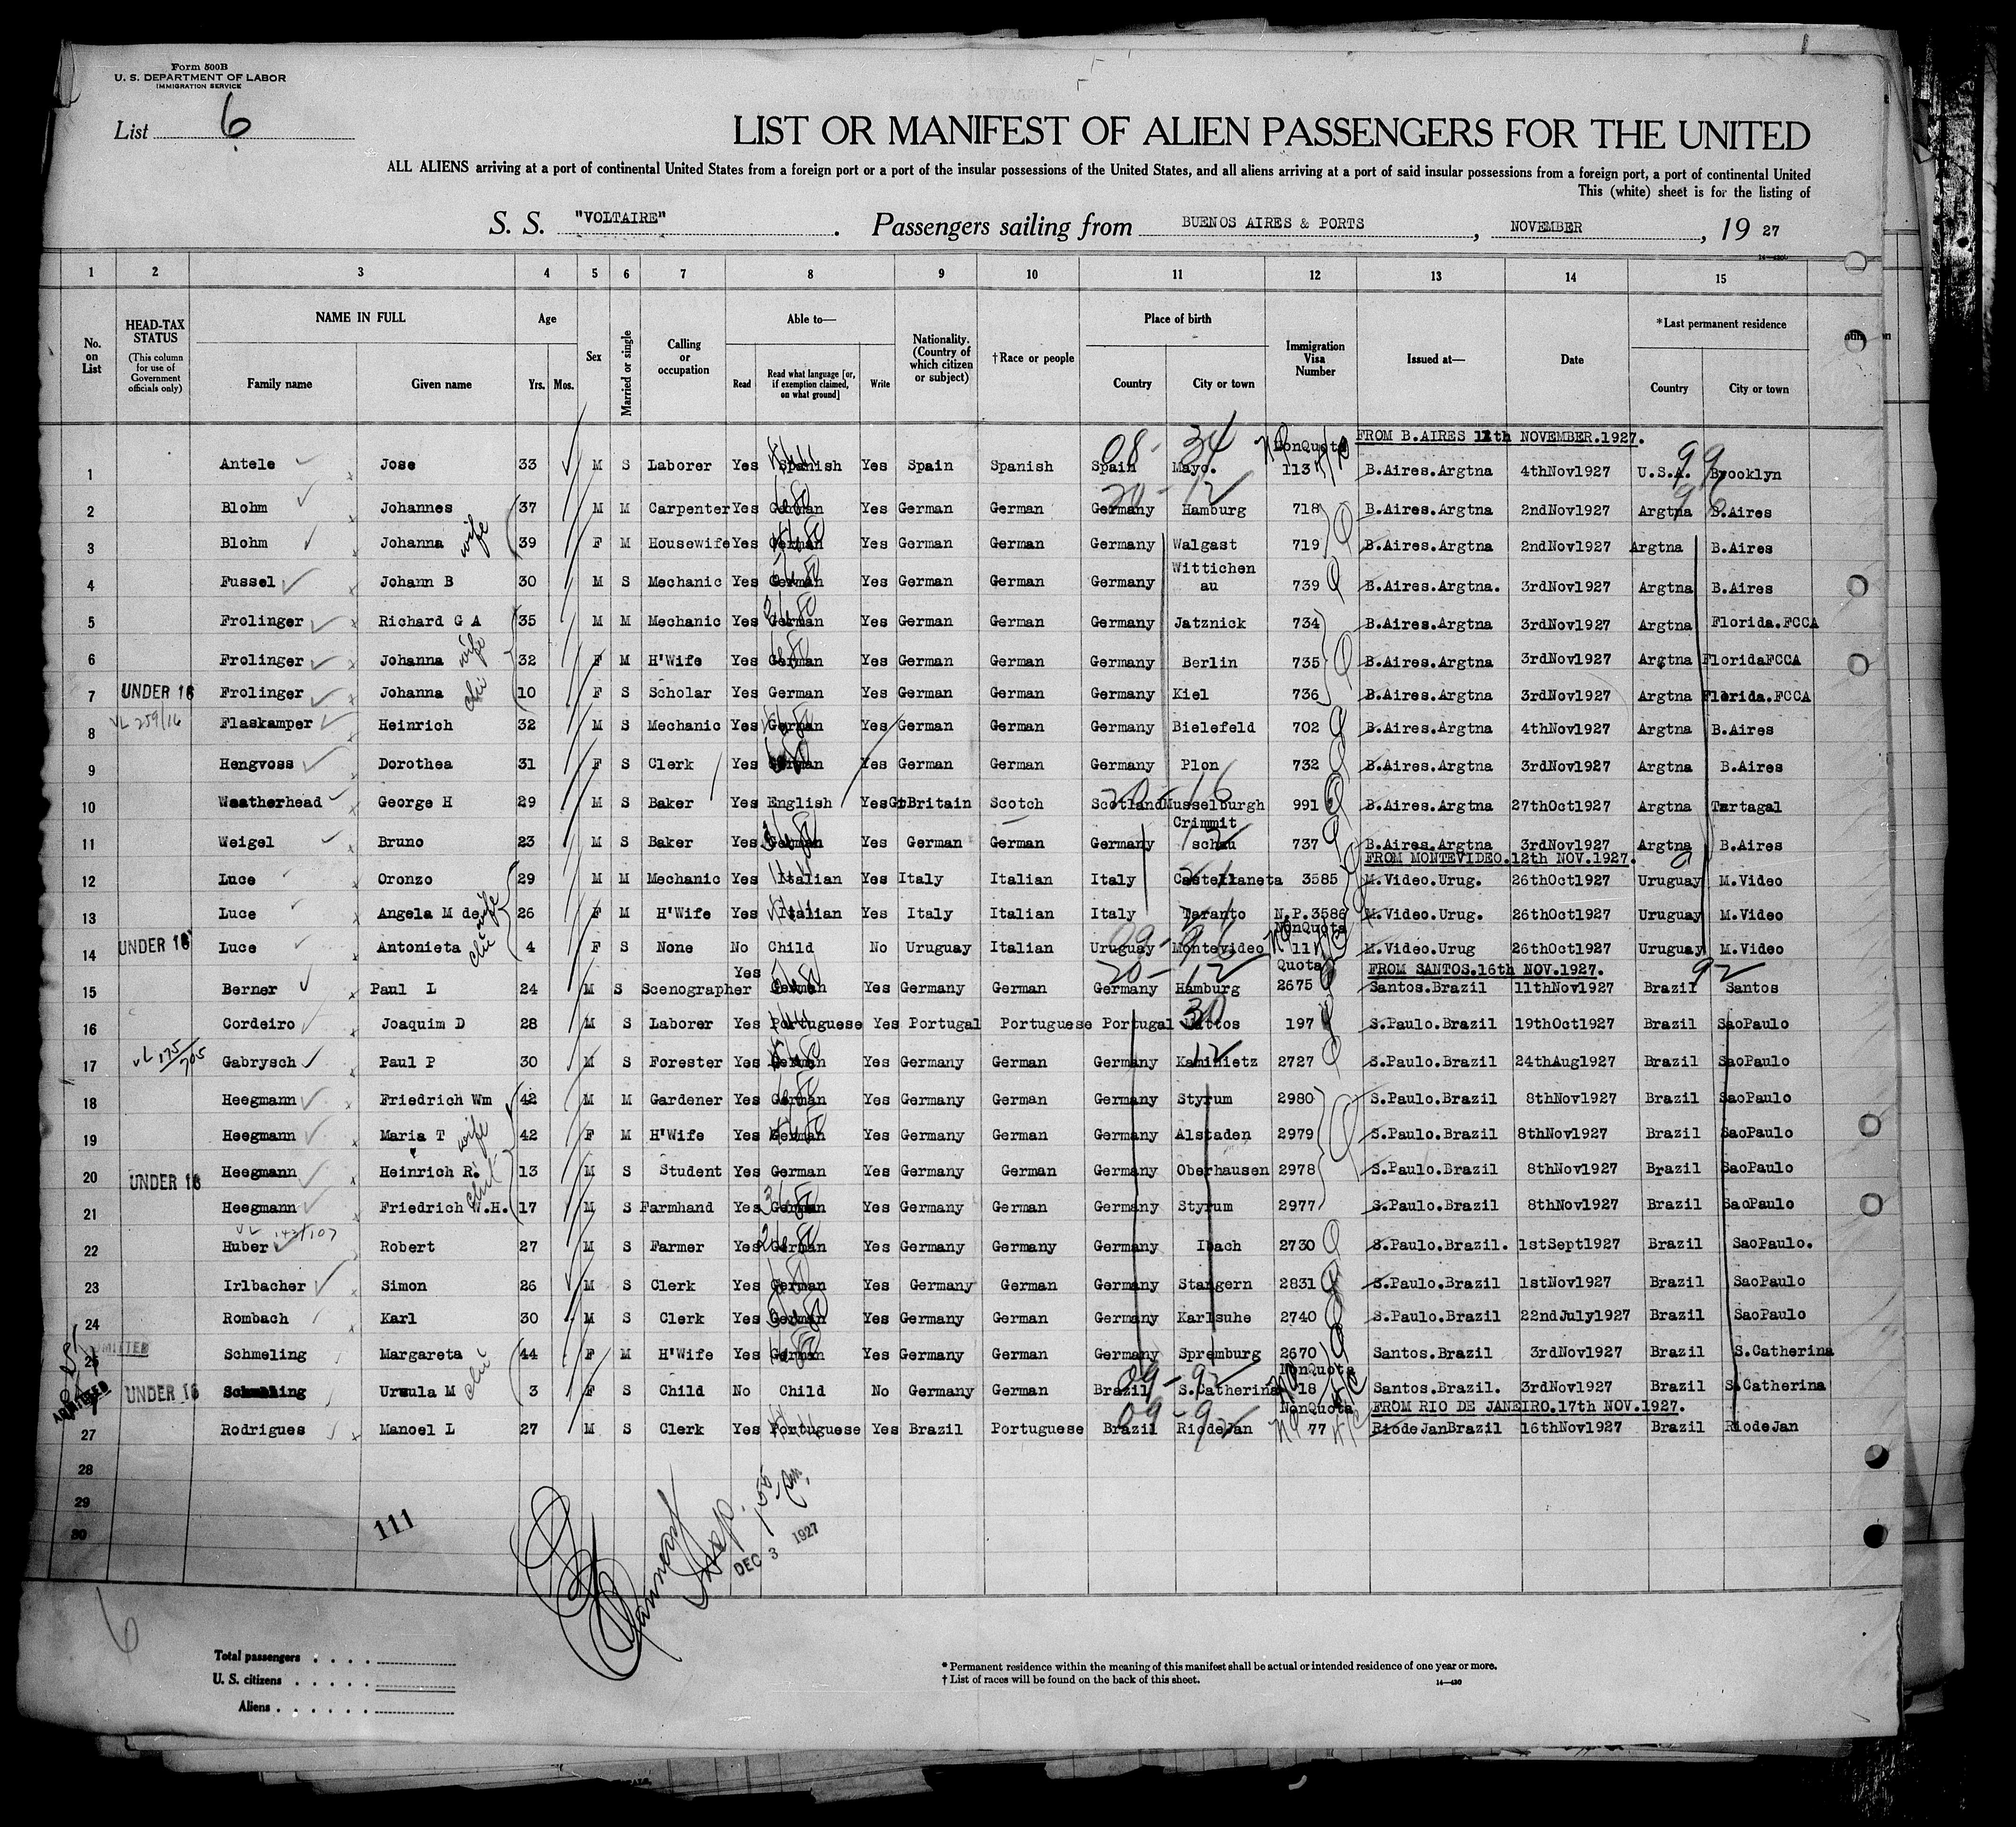 Form 500B
U. S. DEPARTMENT OF LABOR
IMMIGRATION SERVICE
List 6
LIST OR MANIFEST OF ALIEN PASSENGERS FOR THE UNITED
ALL ALIENS arriving at a port of continental United States from a foreign port or a port of the insular possessions of the United States, and all aliens arriving at a port of said insular possessions from a foreign port, a port of continental United
This (white) sheet is for the listing of
S. S. "VOLTAIRE". Passengers sailing from BUENOS AIRES & PORTS, NOVEMBER, 19 27
1 2 3 4 5 6 7 8 9 10 11 12 13 14 15
No. on List
HEAD-TAX STATUS (This column for use of Government officials only)
NAME IN FULL
Family name Given name
Age
Yrs. Mos.
Sex
Married or single
Calling or occupation
Able to—
Read Read what language [or, if exemption claimed, on what ground] Write
Nationality. (Country of which citizen or subject)
†Race or people
Place of birth
Country City or town
Immigration Visa Number
Issued at—
Date
*Last permanent residence
Country City or town
FROM B.AIRES 11th NOVEMBER.1927.
1 Antele Jose 33 M S Laborer Yes Spanish Yes Spain Spanish Spain Mayo. NonQuota 113 B.Aires.Argtna 4thNov1927 U.S.A. Brooklyn
2 Blohm Johannes 37 M M Carpenter Yes German Yes German German Germany Hamburg 718 B.Aires.Argtna 2ndNov1927 Argtna B.Aires
3 Blohm Johanna wife 39 F M Housewife Yes German Yes German German Germany Walgast 719 B.Aires.Argtna 2ndNov1927 Argtna B.Aires
4 Fussel Johann B 30 M S Mechanic Yes German Yes German German Germany Wittichen au 739 B.Aires.Argtna. 3rdNov1927 Argtna B.Aires
5 Frolinger Richard G A 35 M M Mechanic Yes German Yes German German Germany Jatznick 734 B.Aires.Argtna 3rdNov1927 Argtna Florida.FCCA
6 Frolinger Johanna wife 32 F M H'Wife Yes German Yes German German Germany Berlin 735 B.Aires.Argtna 3rdNov1927 Argtna FloridaFCCA
7 UNDER 16 Frolinger Johanna 10 F S Scholar Yes German Yes German German Germany Kiel 736 B.Aires.Argtna 3rdNov1927 Argtna Florida.FCCA
8 VL 259/16 Flaskamper Heinrich 32 M S Mechanic Yes German Yes German German Germany Bielefeld 702 B.Aires.Argtna 4thNov1927 Argtna B.Aires
9 Hengvoss Dorothea 31 F S Clerk Yes German Yes German German Germany Plon 732 B.Aires.Argtna 3rdNov1927 Argtna B.Aires
10 Weatherhead George H 29 M S Baker Yes English Yes GtBritain Scotch Scotland Musselburgh 991 B.Aires.Argtna 27thOct1927 Argtna Tartagal
11 Weigel Bruno 23 M S Baker Yes German Yes German German Germany Crimmit schau 737 B.Aires.Argtna 3rdNov1927 Argtna B.Aires
FROM MONTEVIDEO.12th NOV.1927.
12 Luce Oronzo 29 M M Mechanic Yes Italian Yes Italy Italian Italy Castellaneta 3585 M.Video.Urug. 26thOct1927 Uruguay M.Video
13 Luce Angela M de wife 26 F M H'Wife Yes Italian Yes Italy Italian Italy Taranto N.P.3586 M.Video.Urug. 26thOct1927 Uruguay M.Video
14 UNDER 16 Luce Antonieta 4 F S None No Child No Uruguay Italian Uruguay Montevideo NonQuota 11 M.Video.Urug 26thOct1927 Uruguay M.Video
FROM SANTOS.16th NOV.1927.
15 Berner Paul L 24 M S Scenographer Yes German Yes Germany German Germany Hamburg Quota 2675 Santos.Brazil 11thNov1927 Brazil Santos
16 Cordeiro Joaquim D 28 M S Laborer Yes Portuguese Yes Portugal Portuguese Portugal 197 S.Paulo.Brazil 19thOct1927 Brazil SaoPaulo
17 VL 175/705 Gabrysch Paul P 30 M S Forester Yes German Yes Germany German Germany Kaminietz 2727 S.Paulo.Brazil 24thAug1927 Brazil SaoPaulo
18 Heegmann Friedrich Wm 42 M M Gardener Yes German Yes Germany German Germany Styrum 2980 S.Paulo.Brazil 8thNov1927 Brazil SaoPaulo
19 Heegmann Maria T wife 42 F M H'Wife Yes German Yes Germany German Germany Alstaden 2979 S.Paulo.Brazil 8thNov1927 Brazil SaoPaulo
20 UNDER 16 Heegmann Heinrich R. 13 M S Student Yes German Yes Germany German Germany Oberhausen 2978 S.Paulo.Brazil 8thNov1927 Brazil SaoPaulo
21 Heegmann Friedrich W.H. 17 M S Farmhand Yes German Yes Germany German Germany Styrum 2977 S.Paulo.Brazil 8thNov1927 Brazil SaoPaulo
22 Huber Robert 27 M S Farmer Yes German Yes Germany Germany Germany Ibach 2730 S.Paulo.Brazil. 1stSept1927 Brazil SaoPaulo.
23 Irlbacher Simon 26 M S Clerk Yes German Yes Germany German Germany Stangern 2831 S.Paulo.Brazil 1stNov1927 Brazil SaoPaulo
24 Rombach Karl 30 M S Clerk Yes German Yes Germany German Germany Karlsuhe 2740 S.Paulo.Brazil 22ndJuly1927 Brazil SaoPaulo
25 Schmeling Margareta 44 F M H'Wife Yes German Yes Germany German Germany Spremburg 2670 Santos.Brazil 3rdNov1927 Brazil S.Catherina
ADMITTED UNDER 16 Schmeling Ursula M 3 F S Child No Child No Germany German Brazil S.Catherina NonQuota 18 Santos.Brazil. 3rdNov1927 Brazil S.Catherina
FROM RIO DE JANEIRO.17th NOV.1927.
27 Rodrigues Manoel L 27 M S Clerk Yes Portuguese Yes Brazil Portuguese Brazil RiodeJan NonQuota 77 RiodeJanBrazil 16thNov1927 Brazil RiodeJan
28
29
30
111
DEC 3 1927
6
Total passengers
U. S. citizens
Aliens
* Permanent residence within the meaning of this manifest shall be actual or intended residence of one year or more.
† List of races will be found on the back of this sheet.
14—430